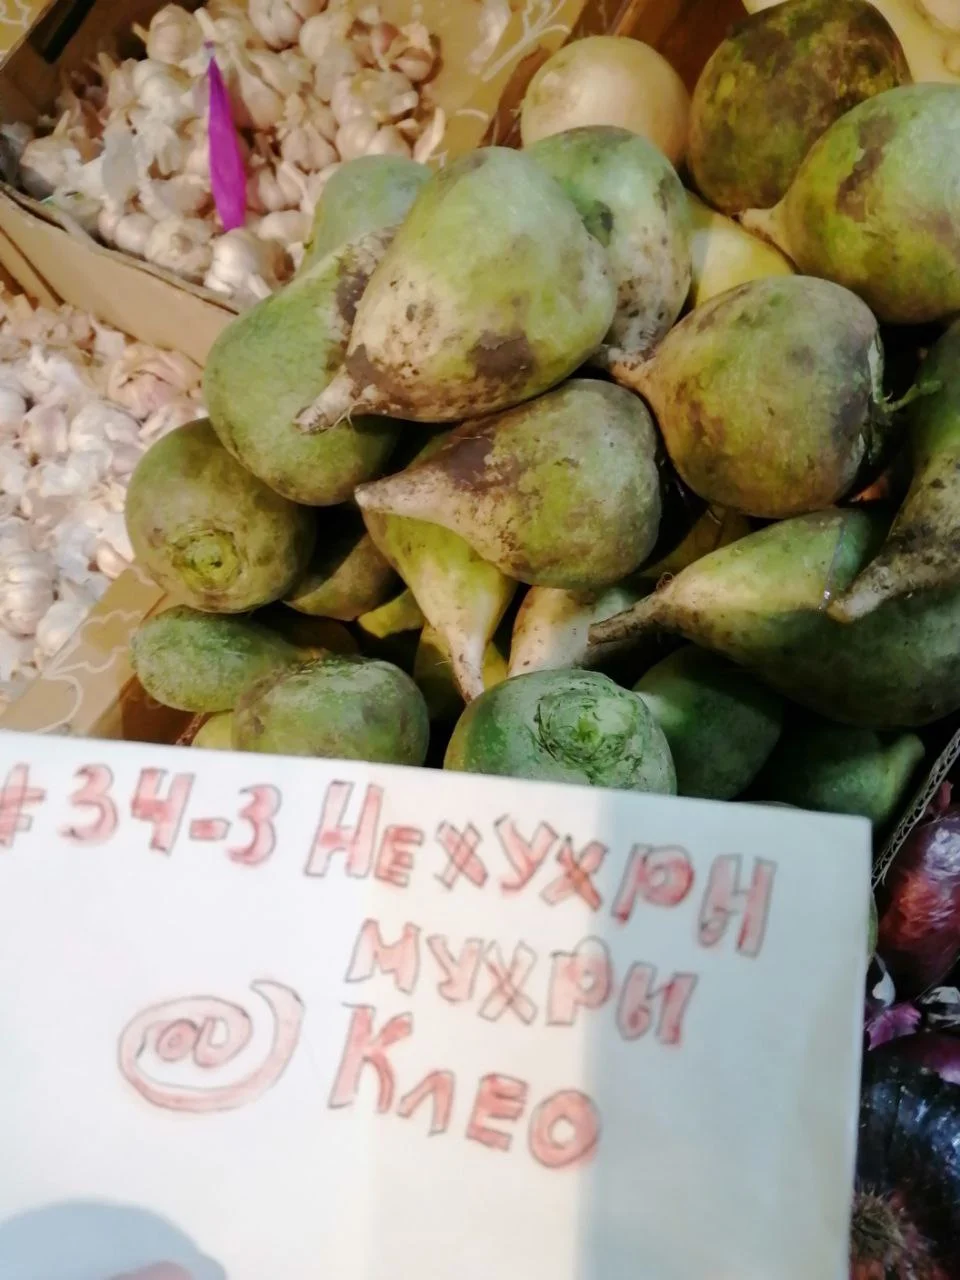 #34-3 НЕХУХРЫ
МУХРЫ
@ КЛЕО